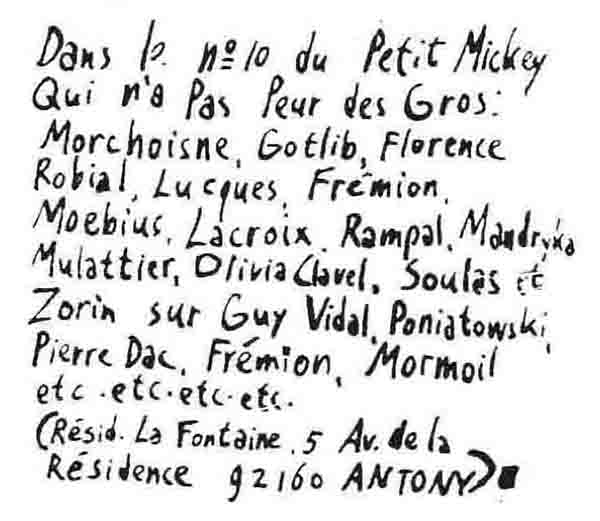 Dans le n° 10 du Petit Mickey
Qui n'a Pas Peur des Gros:
Morchoisne, Gotlib, Florence
Robial, Lucques, Frémion,
Moebius, Lacroix, Rampal, Mandryka
Mulattier, Olivia Clavel, Soulas et
Zorin sur Guy Vidal, Poniatowski,
Pierre Dac, Frémion, Mormoil
etc.etc.etc.etc.
(Résid. La Fontaine, 5 Av. de la
Résidence 92160 ANTONY)